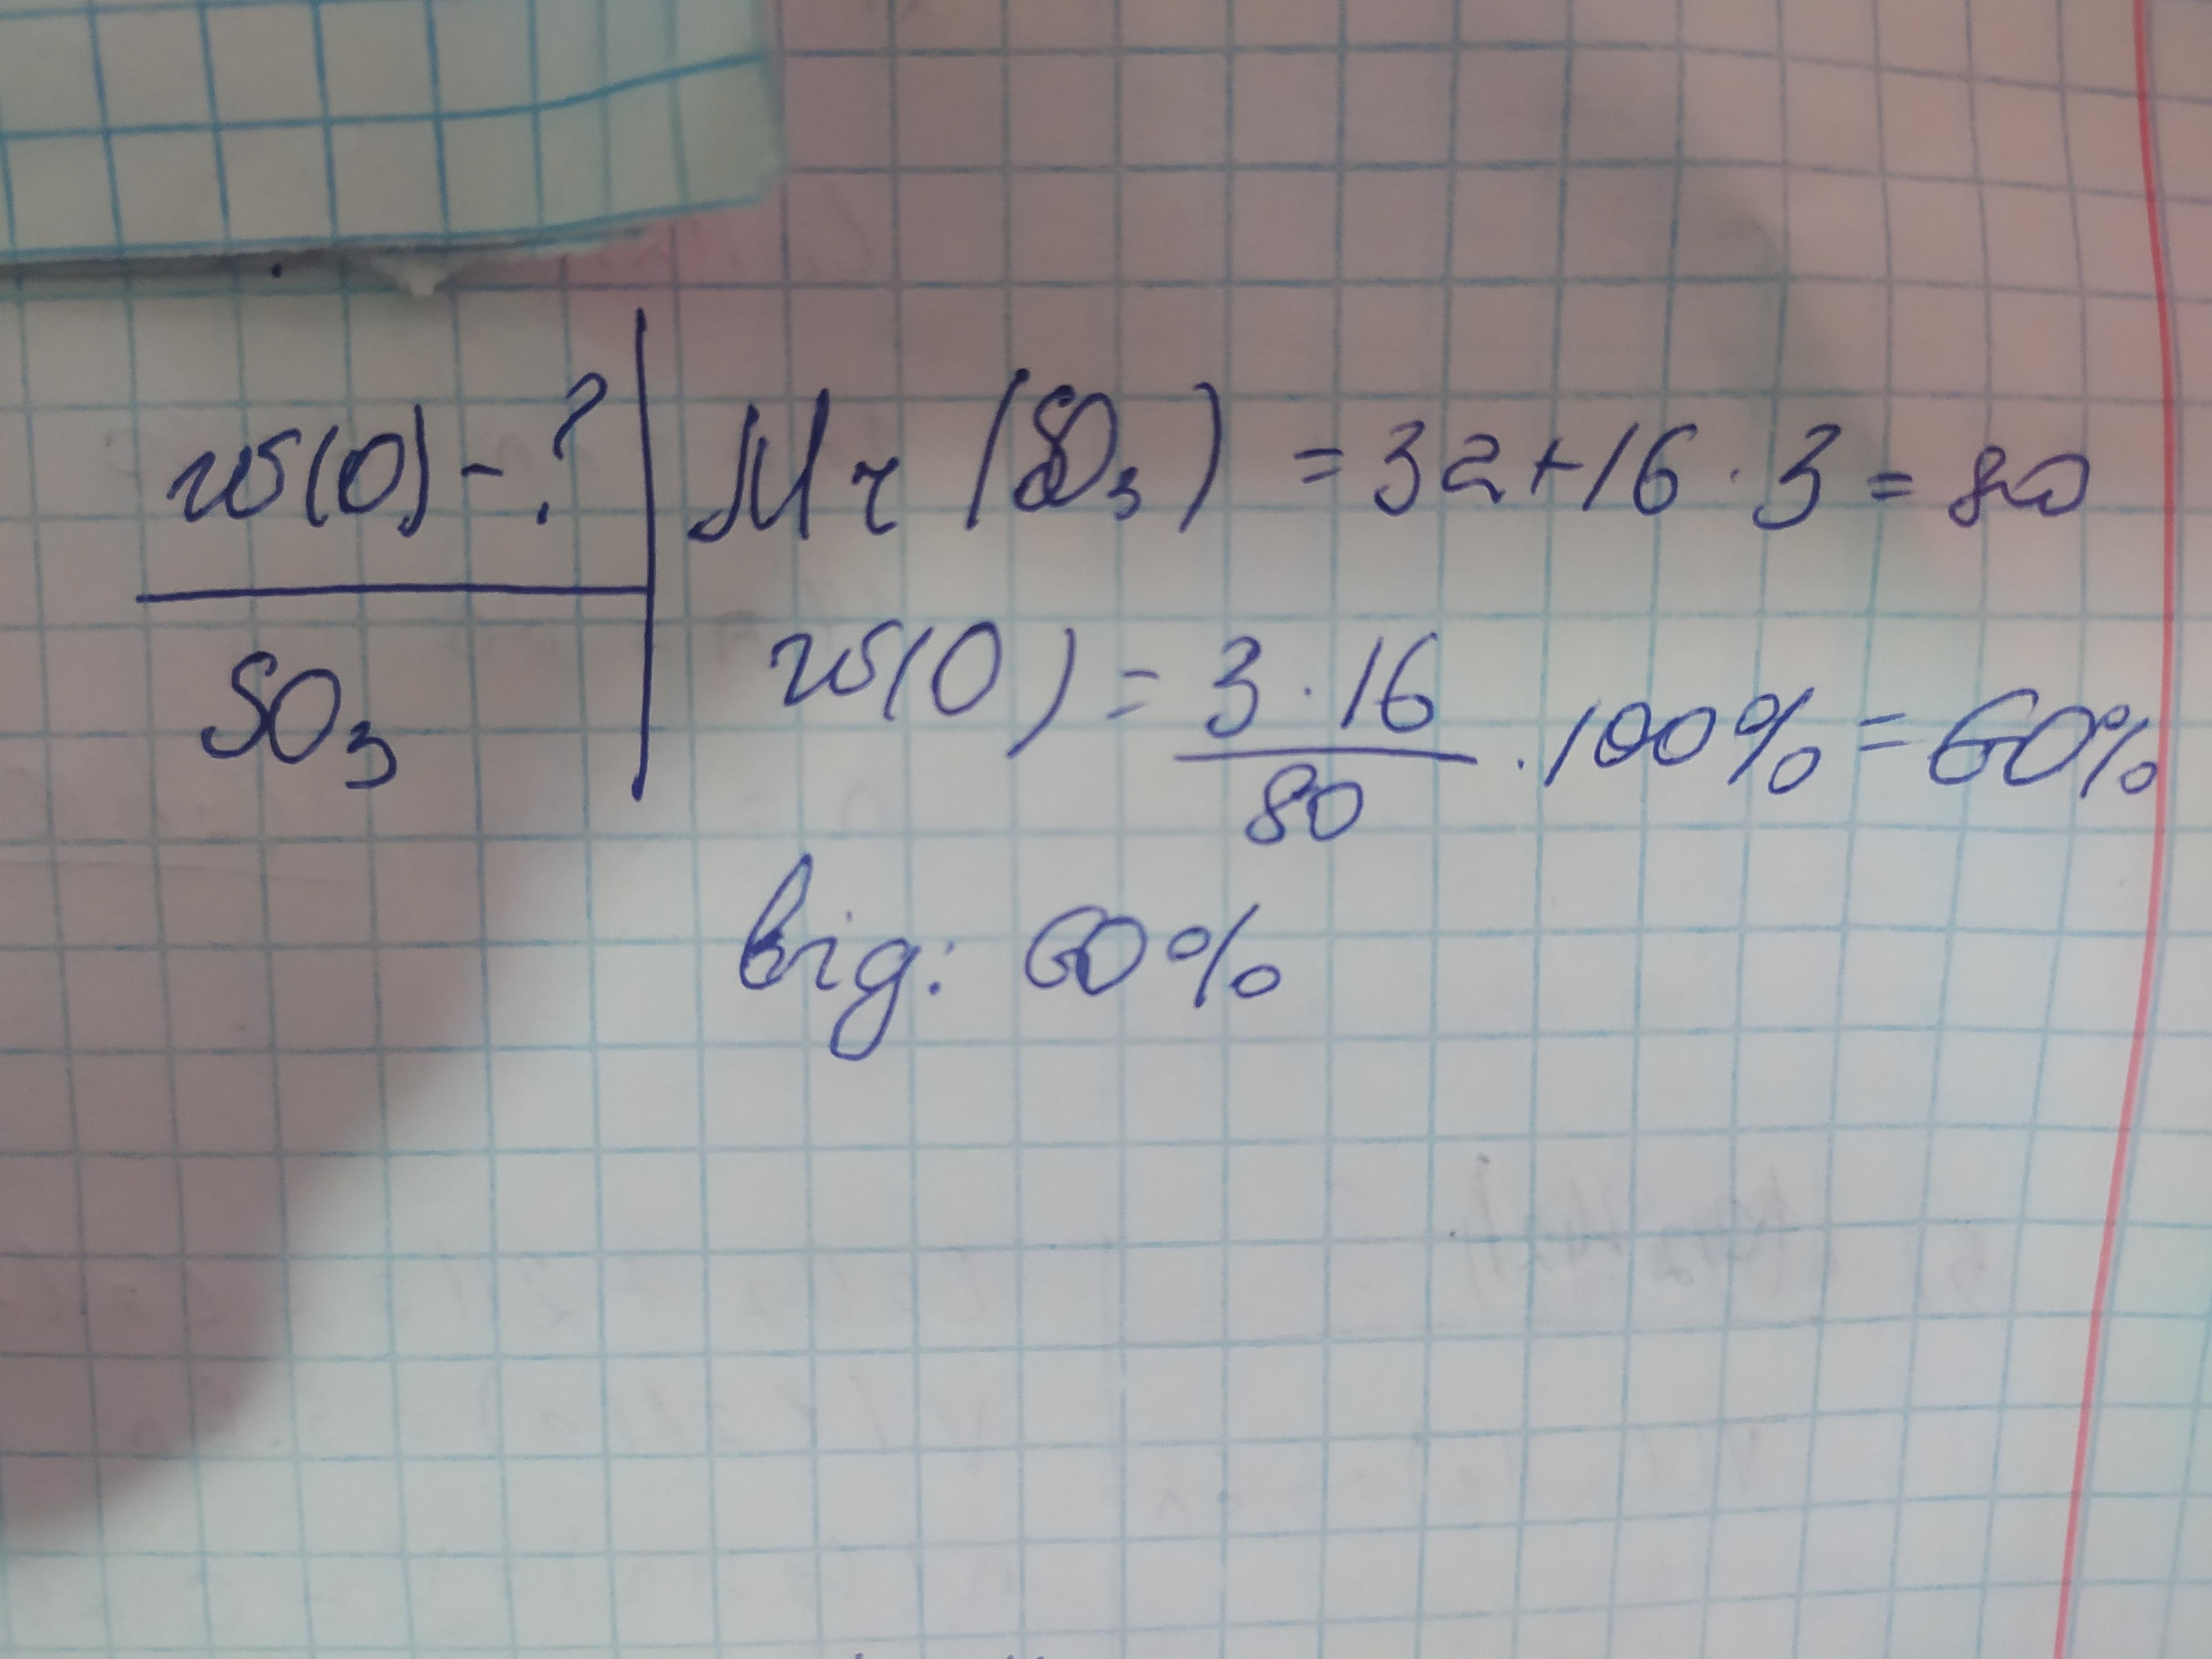 w(O) - ?
SO₃
Mr (SO₃) = 32 + 16 · 3 = 80
w(O) = 3 · 16 / 80 · 100% = 60%
від: 60%